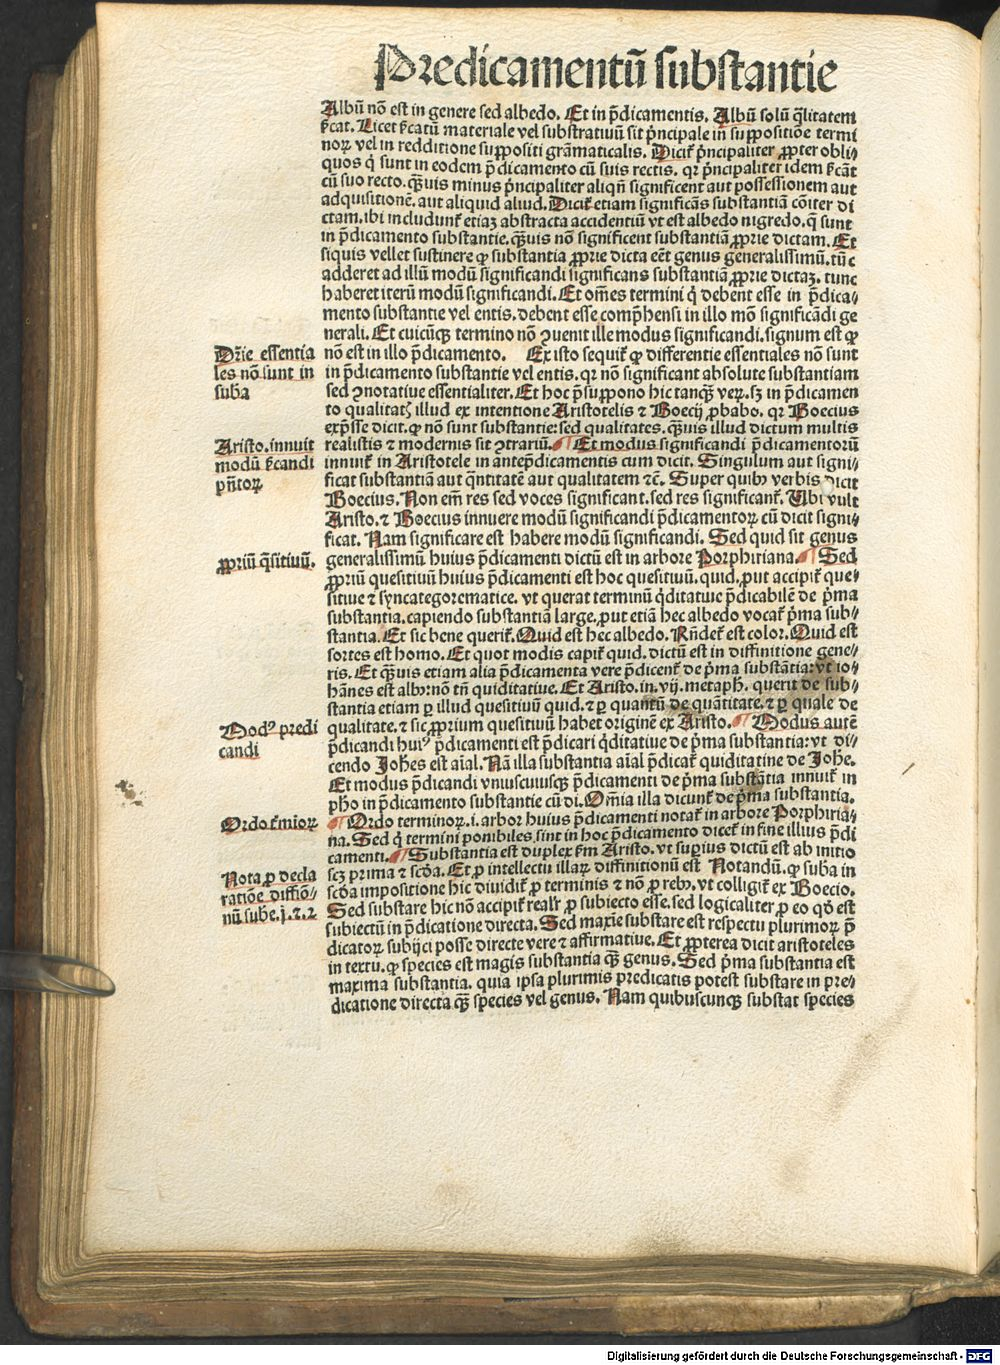 Predicamentū substantie
Albū nō est in genere sed albedo. Et in p̄dicamentis. Albū solū q̄litatem
ẜcat. Licet ẜcatū materiale vel substratiuū sit p̄ncipale in suppositiōe termi
noꝝ vel in redditione suppositi grāmaticalis. Dicit̄ p̄ncipaliter ꝓpter obli⸗
quos q̇ sunt in eodem p̄dicamento cū suis rectis. qꝛ p̄ncipaliter idem ẜcāt
cū suo recto. qꝫuis minus p̄ncipaliter aliqn̄ significent aut possessionem aut
adquisitionē. aut aliquid aliud. Dicit̄ etiam significās substantiā cōiter di
ctam. ibi includunt̄ etiaꝫ abstracta accidentiū vt est albedo nigredo. q̄ sunt
in p̄dicamento substantie. qꝫuis nō significent substantiā ꝓprie dictam. Et
siquis vellet sustinere ꝙ substantia ꝓprie dicta eēt genus generalissimū. tūc
adderet ad illū modū significandi significans substantiā ꝓprie dictaꝫ. tunc
haberet iterū modū significandi. Et om̄es termini q̇ debent esse in p̄dica⸗
mento substantie vel entis. debent esse comp̄hensi in illo mō significādi ge
nerali. Et cuicūqꝫ termino nō ꝯuenit ille modus significandi. signum est ꝙ
Dr̄ie essentia
les nō sunt in
suba
nō est in illo p̄dicamento. Ex isto sequit̄ ꝙ differentie essentiales nō sunt
in p̄dicamento substantie vel entis. qꝛ nō significant absolute substantiam
sed ꝯnotatiue essentialiter. Et hoc p̄suppono hic tanqꝫ veꝝ. sꝫ in p̄dicamen
to qualitatꝭ illud ex intentione Aristotelis ⁊ Boecij ꝓbabo. qꝛ Boecius
exp̄sse dicit. ꝙ nō sunt substantie: sed qualitates. qꝫuis illud dictum multis
Aristo. innuit
modū ẜcandi
p̄ntoꝝ
realistis ⁊ modernis sit ꝯtrariū. ¶ Et modus significandi p̄dicamentorū
innuit̄ in Aristotele in antep̄dicamentis cum dicit. Singulum aut signi⸗
ficat substantiā aut q̄ntitatē aut qualitatem ⁊c̄. Super quibꝰ verbis dicit
Boecius. Non em̄ res sed voces significant. sed res significant̄. Ubi vult
Aristo. ⁊ Boecius innuere modū significandi p̄dicamentoꝝ cū dicit signi⸗
ficat. Nam significare est habere modū significandi. Sed quid sit genus
ꝓpriū q̄sitiuū.
generalissimū huius p̄dicamenti dictū est in arbore Porphiriana. ¶ Sed
ꝓpriū quesitiuū huius p̄dicamenti est hoc quesitiuū. quid. ꝓut accipit̄ que⸗
sitiue ⁊ syncategorematice. vt querat terminū q̇ditatiue p̄dicabilē de p̄ma
substantia. capiendo substantiā large. ꝓut etiā hec albedo vocat̄ p̄ma sub⸗
stantia. Et sic bene querit̄. Quid est hec albedo. Rn̄det̄ est color. Quid est
sortes est homo. Et quot modis capit̄ quid. dictū est in diffinitione gene⸗
ris. Et qꝫuis etiam alia p̄dicamenta vere p̄dicent̄ de p̄ma substātia: vt io⸗
hānes est albꝰ: nō tn̄ quiditatiue. Et Aristo. in. vij. metaph. querit de sub⸗
stantia etiam ꝑ illud quesitiuū quid. ⁊ ꝑ quantū de quātitate. ⁊ ꝑ quale de
Modꝰ predi
candi
qualitate. ⁊ sic ꝓprium quesitiuū habet originē ex Aristo. ¶ Modus autē
p̄dicandi huiꝰ p̄dicamenti est p̄dicari q̇ditatiue de p̄ma substantia: vt di⸗
cendo Joh̄es est aīal. Nā illa substantia aīal p̄dicat̄ quiditatiue de Joh̄e.
Et modus p̄dicandi vniuscuiusqꝫ p̄dicamenti de p̄ma substātia innuit̄ in
pho in p̄dicamento substantie cū di. Om̄ia illa dicunt̄ de p̄ma substantia.
Ordo t̄mioꝝ
¶ Ordo terminoꝝ. i. arbor huius p̄dicamenti notat̄ in arbore Porphiria⸗
na. Sed q̇ termini ponibiles sint in hoc p̄dicamento dicet̄ in fine illius p̄di
camenti. ¶ Substantia est duplex ẜm Aristo. vt superius dictū est ab initio
Nota ꝓ decla
ratiōe diffiō⸗
nū sube. j. ⁊. 2
scꝫ prima ⁊ scd̄a. Et ꝓ intellectu illaꝝ diffinitionū est Notandū. ꝙ suba in
scd̄a impositione hic diuidit̄ ꝓ terminis ⁊ nō ꝓ rebꝰ. vt colligit̄ ex Boecio.
Sed substare hic nō accipit̄ realr̄ ꝓ subiecto esse. sed logicaliter ꝓ eo qd̄ est
subiectū in p̄dicatione directa. Sed maxīe substare est respectu plurimoꝝ p̄
dicatoꝝ subijci posse directe vere ⁊ affirmatiue. Et ꝓpterea dicit aristoteles
in textu. ꝙ species est magis substantia qꝫ genus. Sed p̄ma substantia est
maxima substantia. quia ipsa plurimis predicatis potest substare in pre⸗
dicatione directa qꝫ species vel genus. Nam quibuscunqꝫ substat species
Digitalisierung gefördert durch die Deutsche Forschungsgemeinschaft - DFG